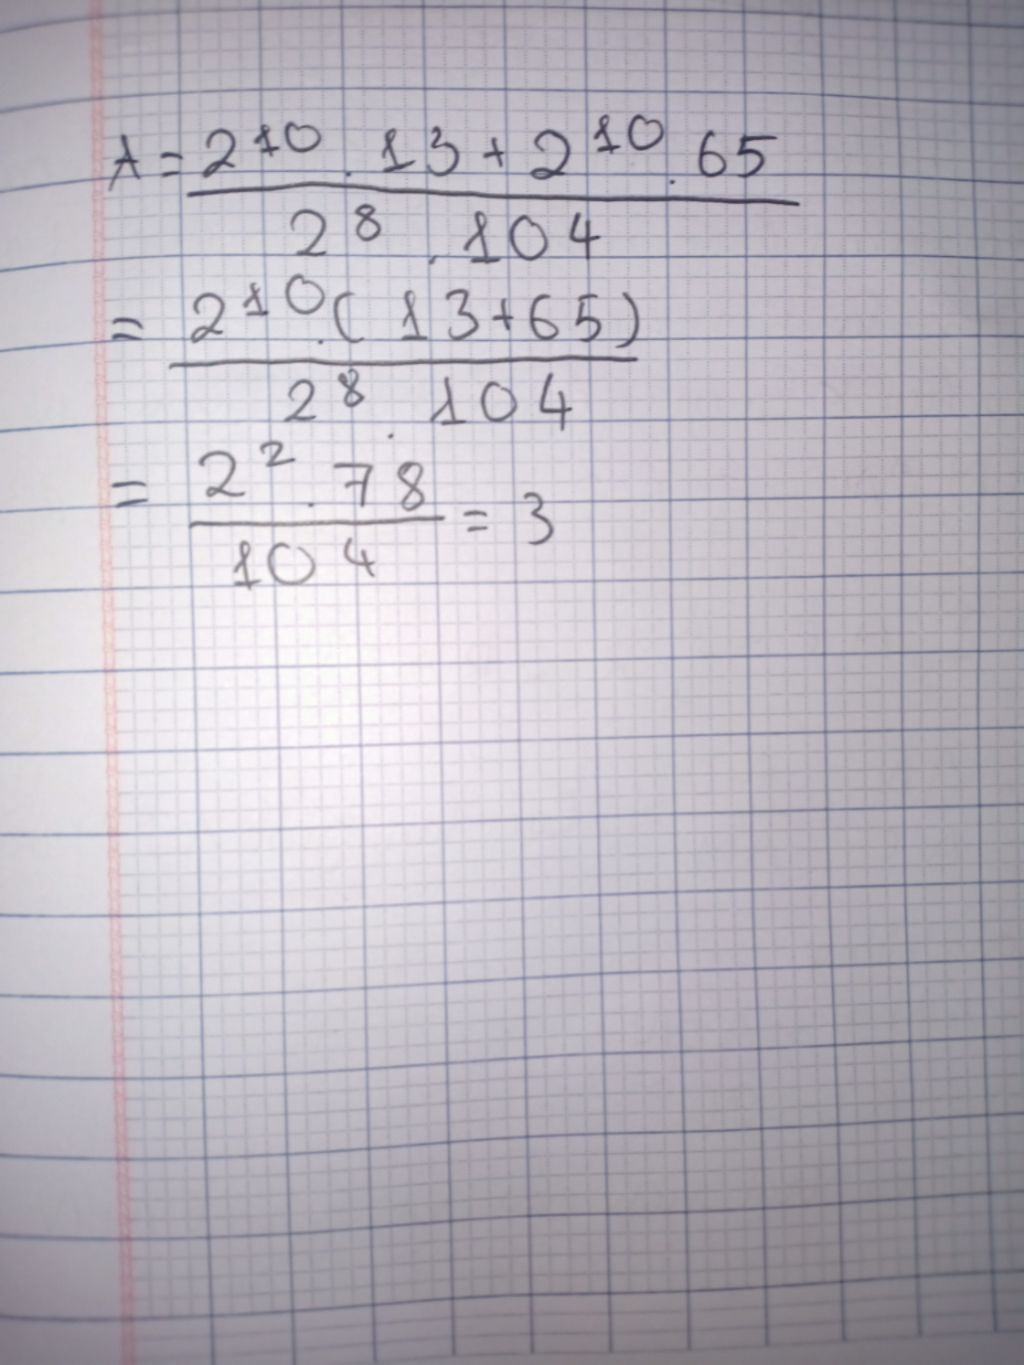 A = \frac{2^{10} . 13 + 2^{10} . 65}{2^8 . 104}
= \frac{2^{10} . (13 + 65)}{2^8 . 104}
= \frac{2^2 . 78}{104} = 3